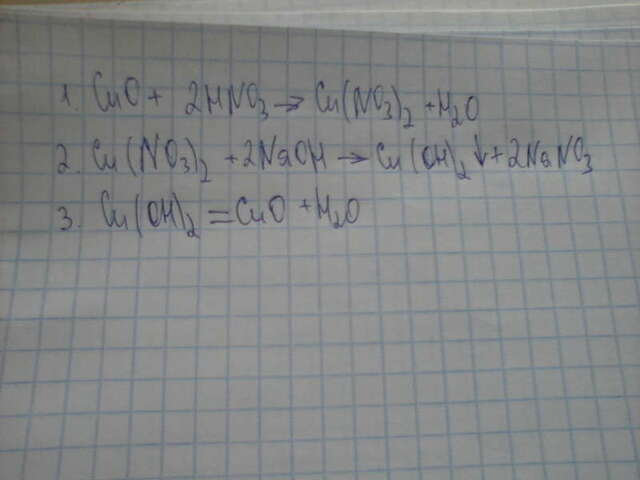 1. CuO + 2HNO3 → Cu(NO3)2 + H2O
2. Cu(NO3)2 + 2NaOH → Cu(OH)2 ↓ + 2NaNO3
3. Cu(OH)2 = CuO + H2O